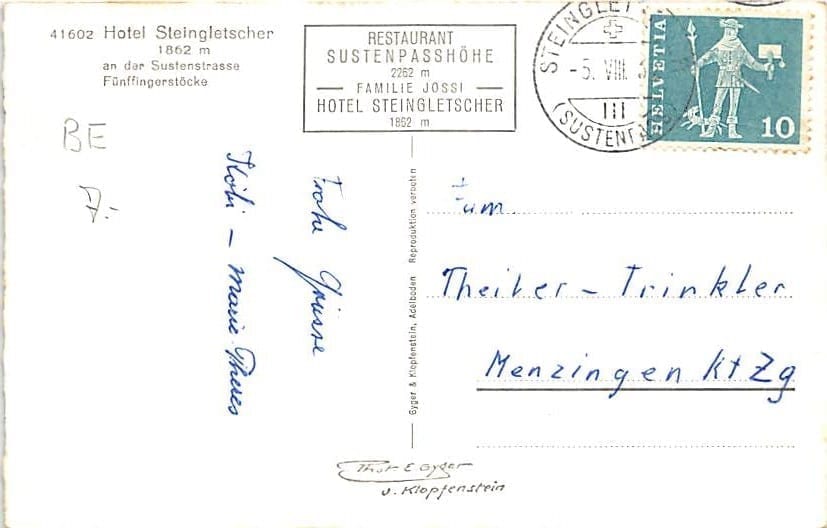 41602 Hotel Steingletscher
1862 m
an der Sustenstrasse
Fünffingerstöcke
BE
7.-
RESTAURANT
SUSTENPASSHÖHE
2262 m
FAMILIE JOSSI
HOTEL STEINGLETSCHER
1862 m
STEINGLET
-5. VIII.
III
(SUSTENPASS)
HELVETIA
10
Frohe Grüsse
Köbi - Marie-Theres
Gyger & Klopfenstein, Adelboden Reproduktion verboten
Fam.
Theiler - Trinkler
Menzingen Kt Zg
Phot E Gyger
u. Klopfenstein